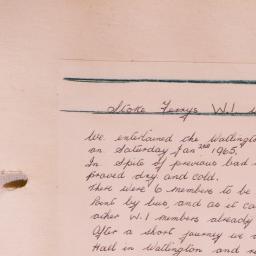 Stoke Ferrys W.I
We entertained the Wattington
on Saturday Jan 2nd 1965.
In Spite of previous bad
proved dry and cold.
There were 6 members to be
Point by bus, and as it
other W.I members already
After a short journey we
Hall in Wattington and